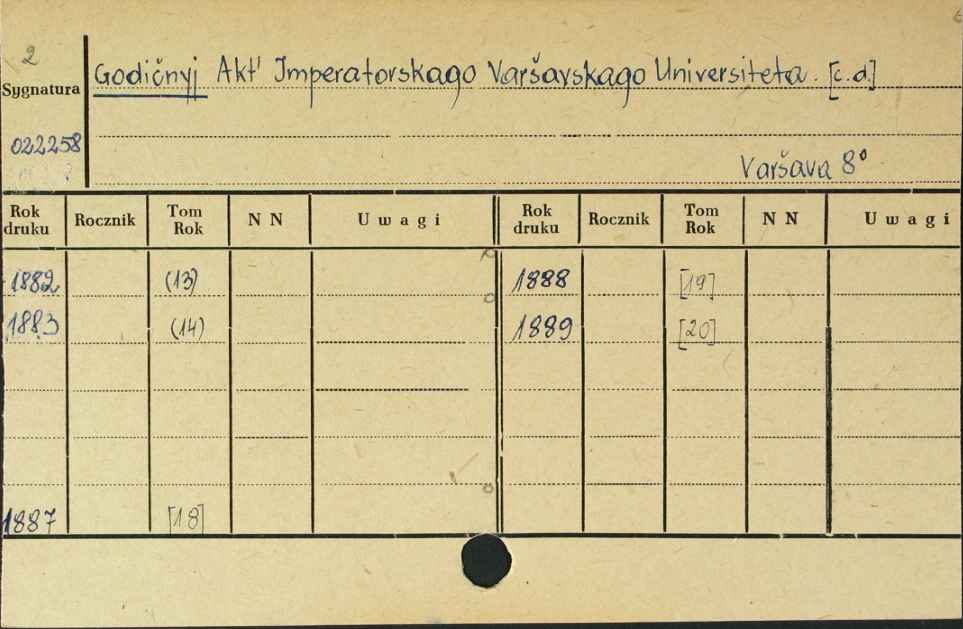 2
Sygnatura
Godičnyj Akt' Imperatorskago Varšavskago Universiteta. [c.d.]
022258
Varšava 8°
Rok druku Rocznik Tom Rok NN Uwagi Rok druku Rocznik Tom Rok NN Uwagi
1882 (13) 1888 [19]
1883 (14) 1889 [20]
1887 [18]